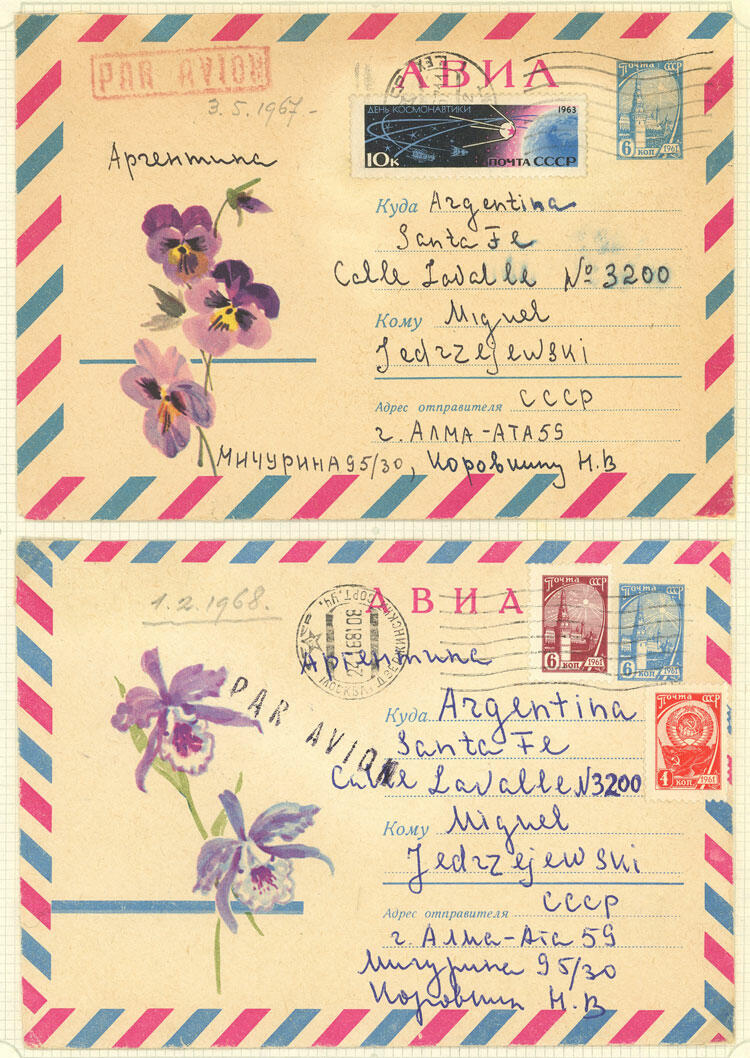 PAR AVION
АВИА
3.5.1967-
ДЕНЬ КОСМОНАВТИКИ 1963
10к ПОЧТА СССР
6 КОП 1961
Аргентина
Куда Argentina
Santa Fe
Calle Lavalle № 3200
Кому Miguel
Jedrzejewski
Адрес отправителя СССР
г. АЛМА-АТА 59
МИЧУРИНА 95/30, Коровкину Н.В
АВИА
1.2.1968.
Почта СССР
6 коп 1961
Почта СССР
6 коп 1961
МОСКВА
Аргентина
PAR AVION
Почта СССР
4 коп 1961
Куда Argentina
Santa Fe
Calle LaValle N3200
Кому Miguel
Jedrzejewski
Адрес отправителя СССР
г. Алма-Ата 59
Мичурина 95/30
Коровкин Н.В